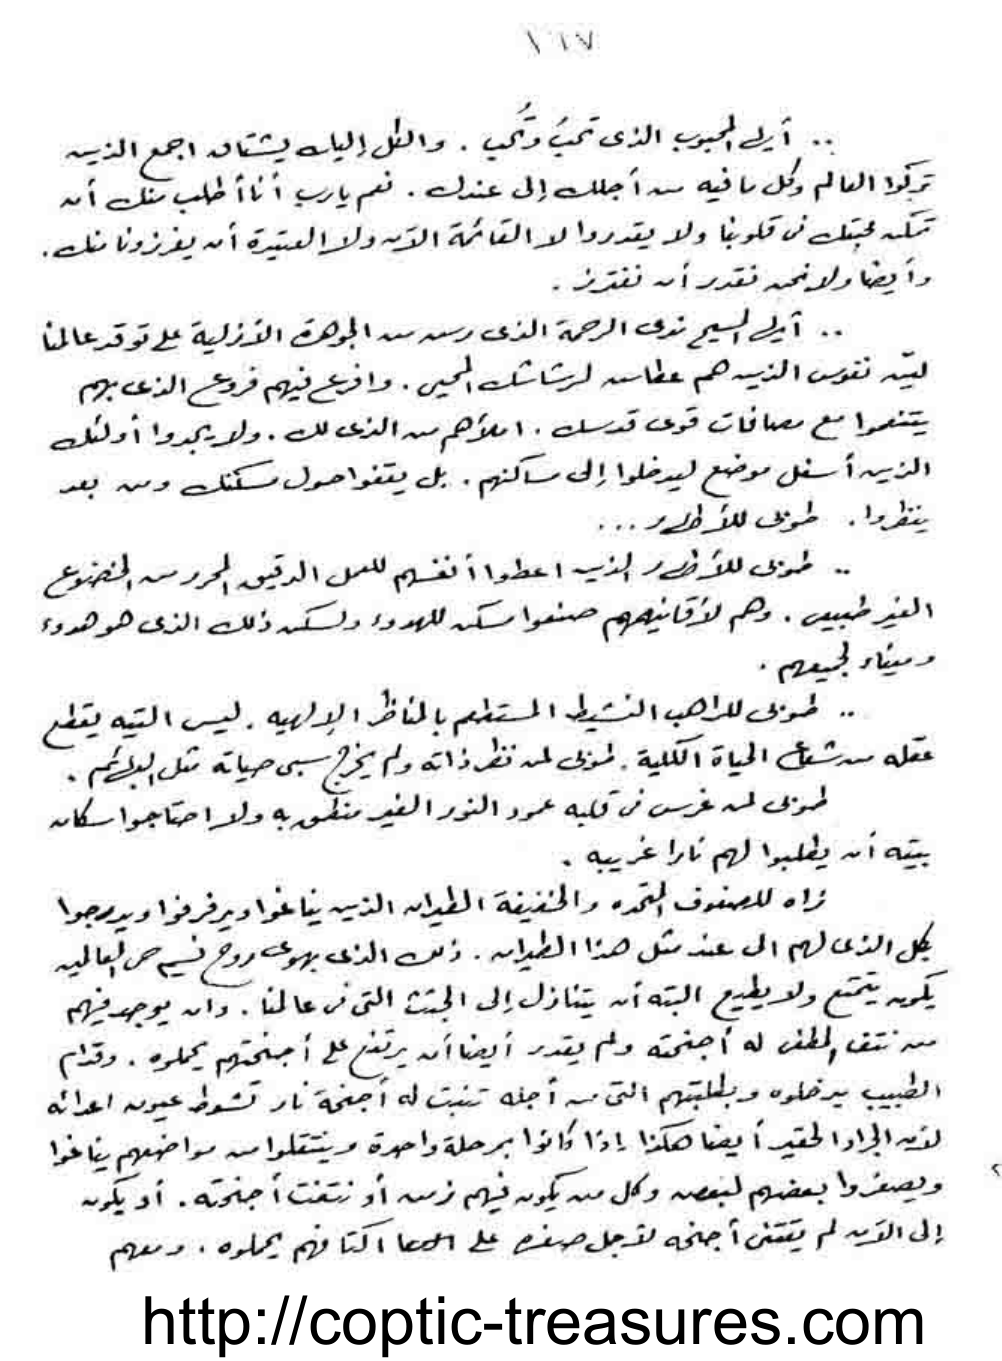 ١٦٧
.. أيها المحبوب الذى تحبَ وتُحب . والكل إليك يشتاق اجمع الذين
تركوا العالم وكل ما فيه من أجلك إلى عندك . نعم يارب أنا أطلب منك أن
تمكن محبتك فى قلوبنا ولا يقدروا لا القائمة الآن ولا العتيدة أن يفرزونا منك .
وأيضا ولا نحن نقدر أن نفترز .
.. أيها المسيح ندى الرحمة الذى رسن من الجوهرة الأزلية على توقد عالمنا
ليّن نفوس الذين هم عطاس لرشاشك المحيى . وافرع فيهم فروع الذى بهم
يتنعموا مع مصافات قوى قدسك . املأهم من الذى لك . ولا يجدوا أولئك
الذين أسفل موضع ليدخلوا إلى مساكنهم . بل يقفوا حول مسكنك ومن بعد
ينظروا . طوبى للأطهار ...
.. طوبى للأطهار الذين اعطوا أنفسهم للعمل الدقيق المحرر من الخضوع
الغير طبيعى . وهم لأقانيمهم صنعوا مسكن للهدوء ولسكن ذلك الذى هو هدوء
وميناء لجميعهم .
.. طوبى للراهب النشيط المستطعم بالمناظر الإلهيه . ليس التيه يقطع
عقله من شعاع الحياة الكلية . طوبى لمن نظر ذاته ولم يخرج سبى حياته مثل البهائم .
طوبى لمن غرس فى قلبه عمود النور الغير منطق به ولا احتاجوا سكان
بيته أن يطلبوا لهم نارا غريبه .
نراه للصفوف المتحده والخفيفة الطيران الذين يناغوا ويرفرفوا ويدرجوا
بكل الذى لهم الى عند مثل هذا الطيران . ذلك الذى بهوى روح نسيم حى العالمين
يكون يتمتع ولا يطيع البته أن يتنازل إلى الجثث التى فى عالمنا . وان يوجد فيهم
من نتف المطغى له أجنحته ولم يقدر أيضا أن يرتفع على أجنحتهم يحملوه . وقدام
الطبيب يدخلوه وبطلبتهم التى من أجله تنبت له أجنحة نار تشوط عيون اعدائه
لأن الجراد الحقير أيضا هكذا إذا كانوا بمرحلة واحدة وينتقلوا من مواضعهم يناغوا
ويصفروا بعضهم لبعض وكل من يكون فيهم زمن أو نتفت أجنحته . أو يكون
إلى الآن لم يقتنى أجنحه لأجل صغره على اكتافهم يحملوه . ومعهم
http://coptic-treasures.com